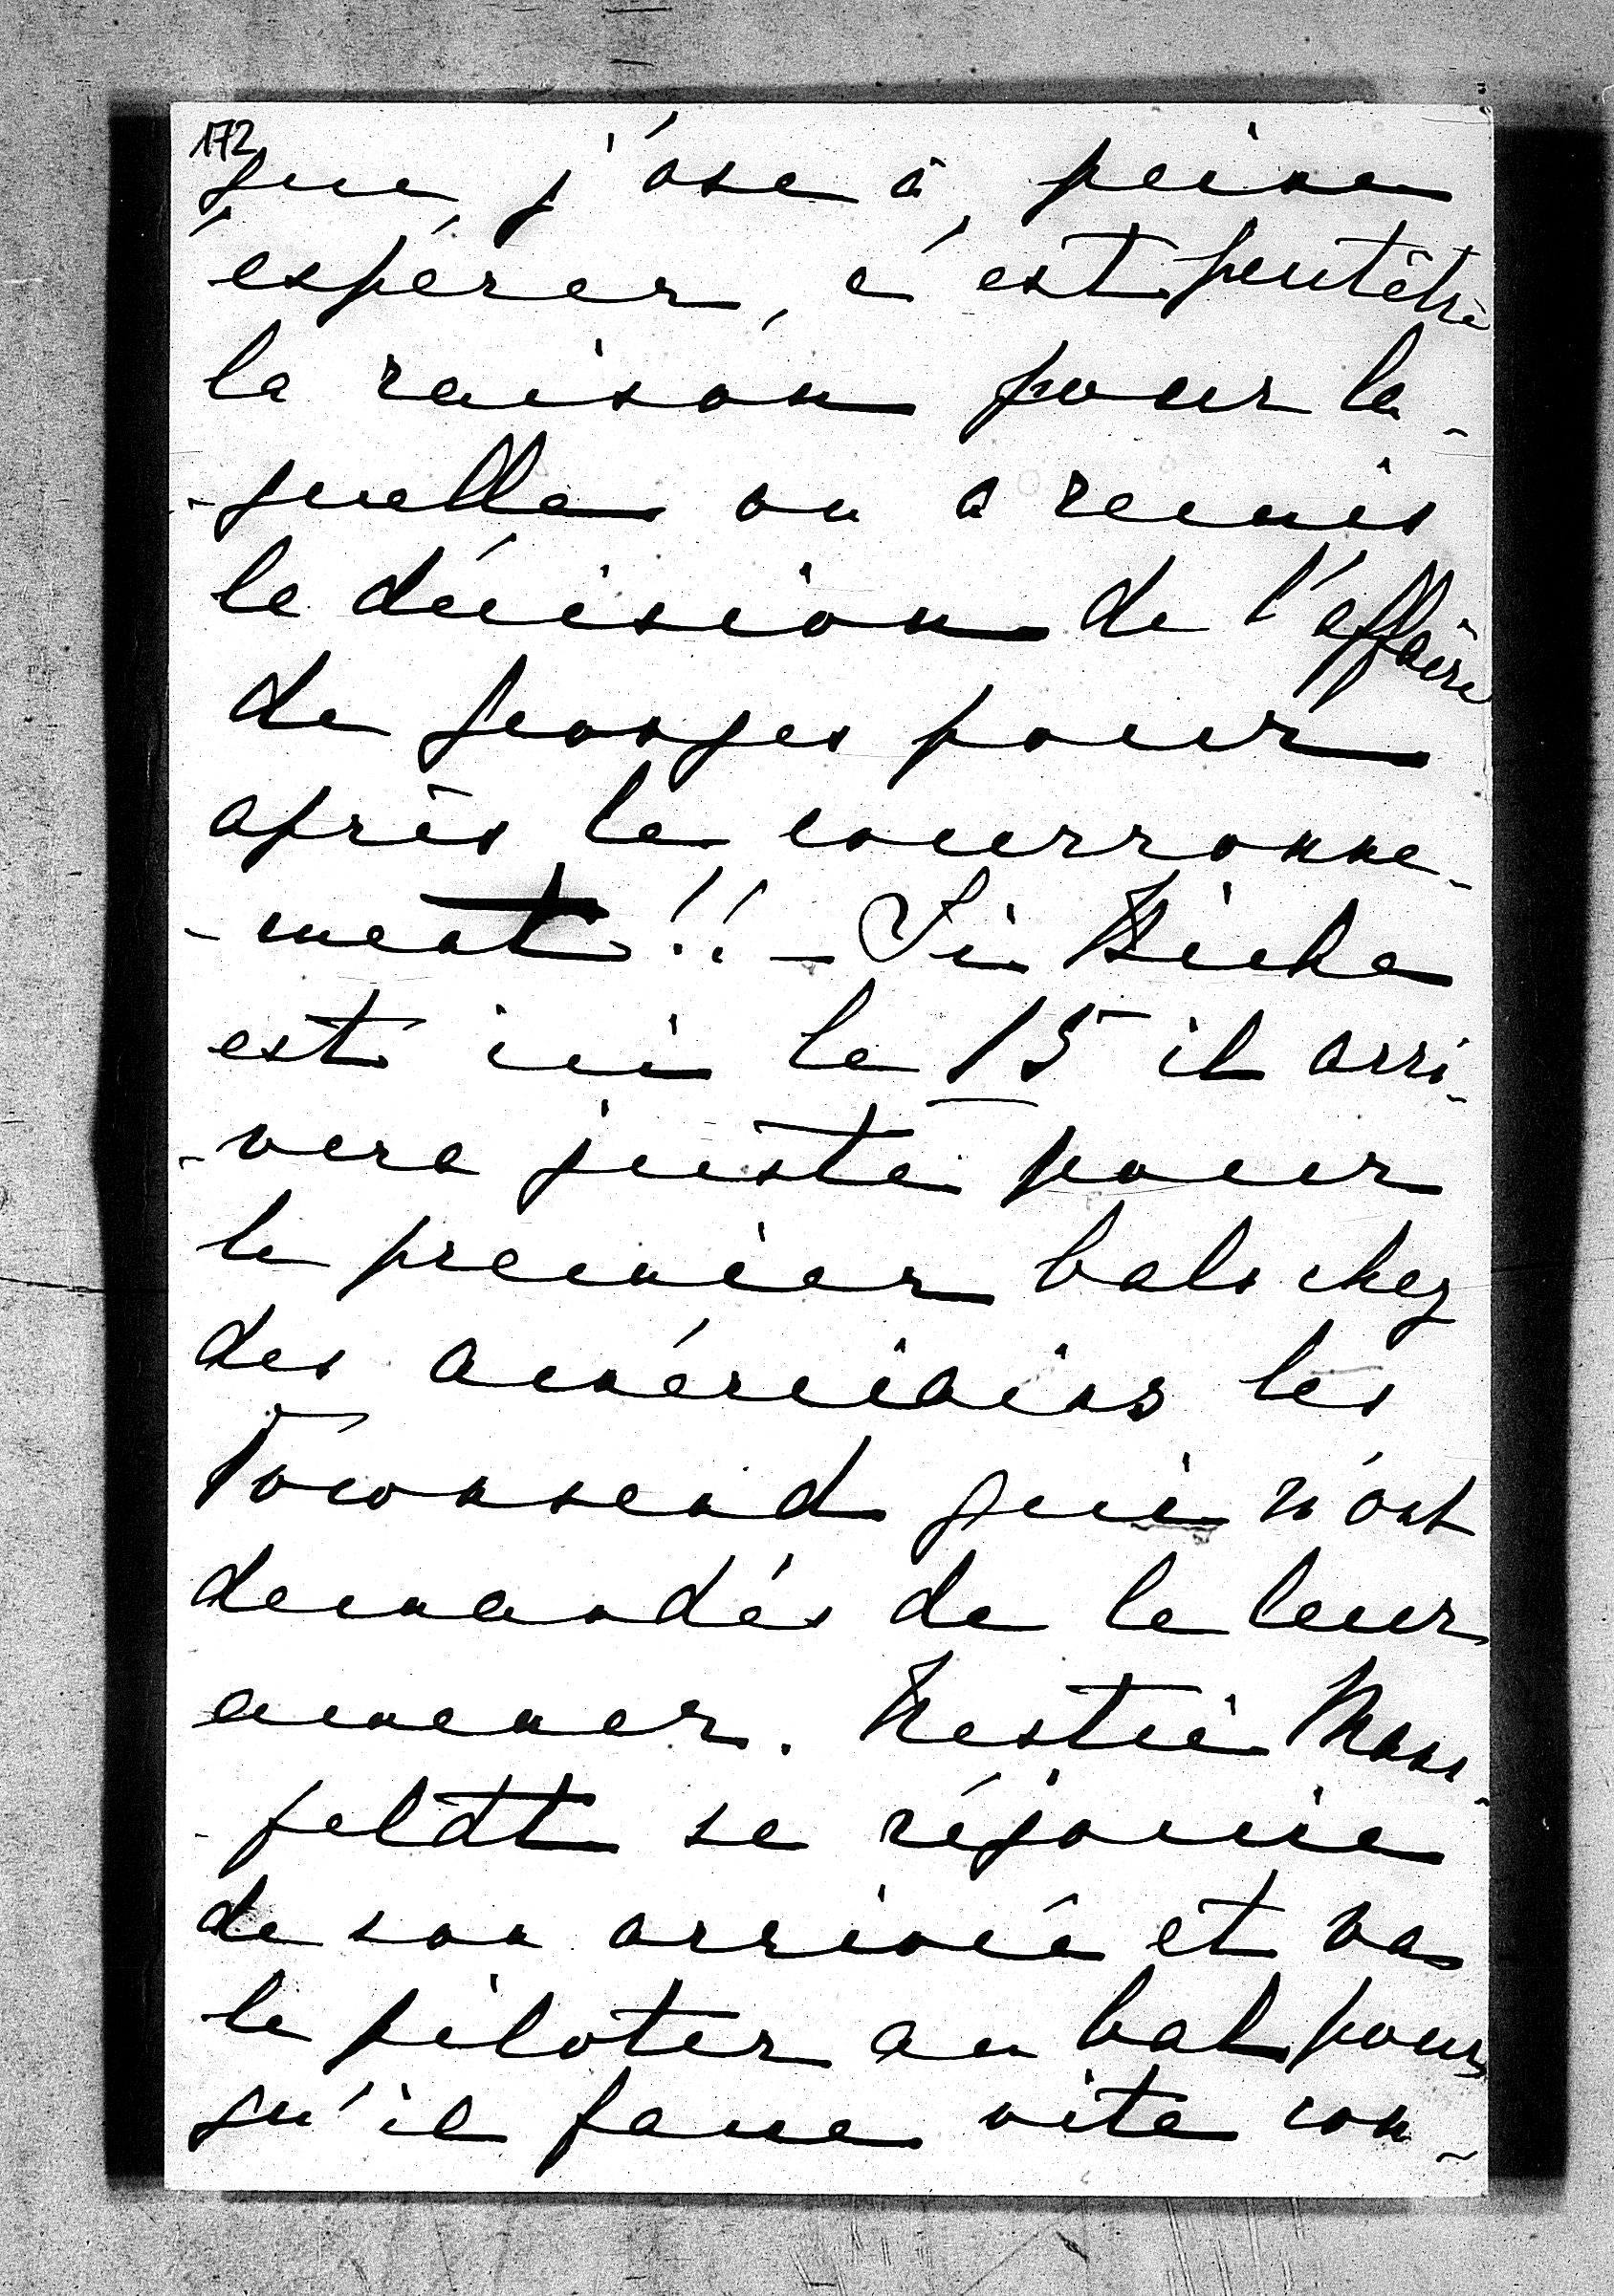 172
que j'ose à peine
espérer, c'est peutêtre
la raison pour la-
-quelle on a remis
la décision de l'affaire
de Georges pour
après le courronne-
-ment!! - Si Micha
est ici le 15 il arri-
-vera juste pour
le premier bal chez
des américains les
Townsend qui m'ont
demandés de le leur
amener. Nestie Mans-
-feldt se réjouie
de son arrivée et va
le piloter au bal pour
qu'il fasse vite con-